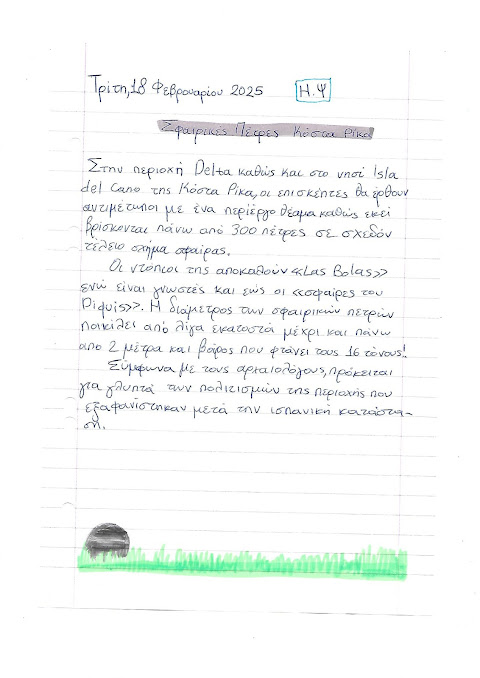 Τρίτη, 18 Φεβρουαρίου 2025 Η.Ψ
Σφαιρικές Πέτρες Κόστα Ρίκα
Στην περιοχή Delta καθώς και στο νησί Isla
del Cano της Κόστα Ρίκα, οι επισκήτες θα έρθουν
αντιμέτωποι με ένα περίεργο θέαμα καθώς εκεί
βρίσκονται πάνω από 300 πέτρες σε σχεδόν
τέλειο σχήμα σφαίρας.
Οι ντόπιοι της αποκαλούν «Las Bolas»
ενώ είναι γνωστές και εώς οι «σφαίρες του
Diquis». Η διάμετρος των σφαιρικών πετρών
ποικίλει από λίγα εκατοστά μέχρι και πάνω
από 2 μέτρα και βάρος που φτάνει τους 16 τόνους!
Σύμφωνα με τους αρχαιολόγους, πρόκειται
για γλυπτά των πολιτισμών της περιοχής που
εξαφανίστηκαν μετά την ισπανική κατάστα-
ση.